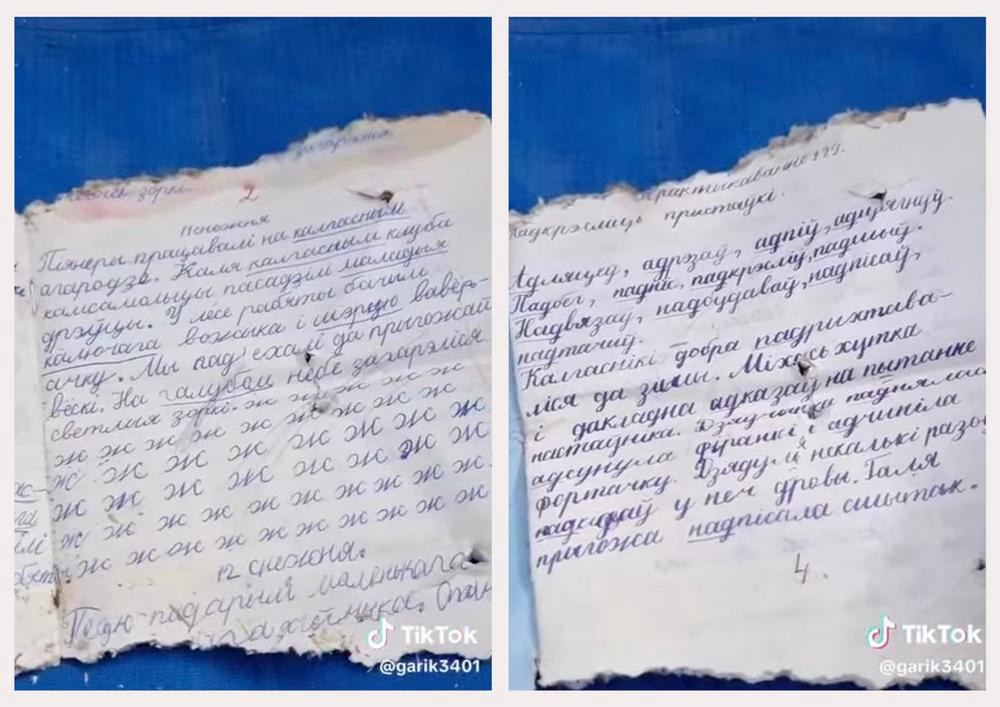 зоркі.
2
Піянеры працавалі на калгасным
агародзе. Каля калгасным клуба
камсамольцы пасадзілі маладыя
дрэўцы. У лесе рабяты бачылі
калючага вожыка і шэрую вавёр-
ачку. Мы пад'ехалі да прыгожай
вёскі. На галубым небе загарэліся
светлыя зоркі. ж ж ж ж ж ж
ж ж ж ж ж ж ж ж ж
ж ж ж ж ж ж ж ж
ж ж ж ж ж ж ж ж
ж ж ж ж ж ж ж ж
ж ж ж ж ж ж ж ж ж
ж ж ж ж ж ж ж ж ж
12 снежня.
маленькага
TikTok
@garik3401
Практикаванне 129.
Падкрэсліць прыстаўкі.
Адляцеў, адрэзаў, адпіў, адцягнуў.
Падбег, падпіс, падкрэсліў, падмыў.
Надвязаў, надбудаваў, надпісаў,
надтачыў.
Калгаснікі добра падрыхтава-
ліся да зімы. Міхась хутка
і дакладна адказаў на пытанне
настаўніка. Дзяўчынка паднялася
адсунула фіранкі і адчыніла
фортачку. Дзядуля некалькі разоў
падкідваў у печ дровы. Галя
прыгожа надпісала сшытак.
4.
TikTok
@garik3401